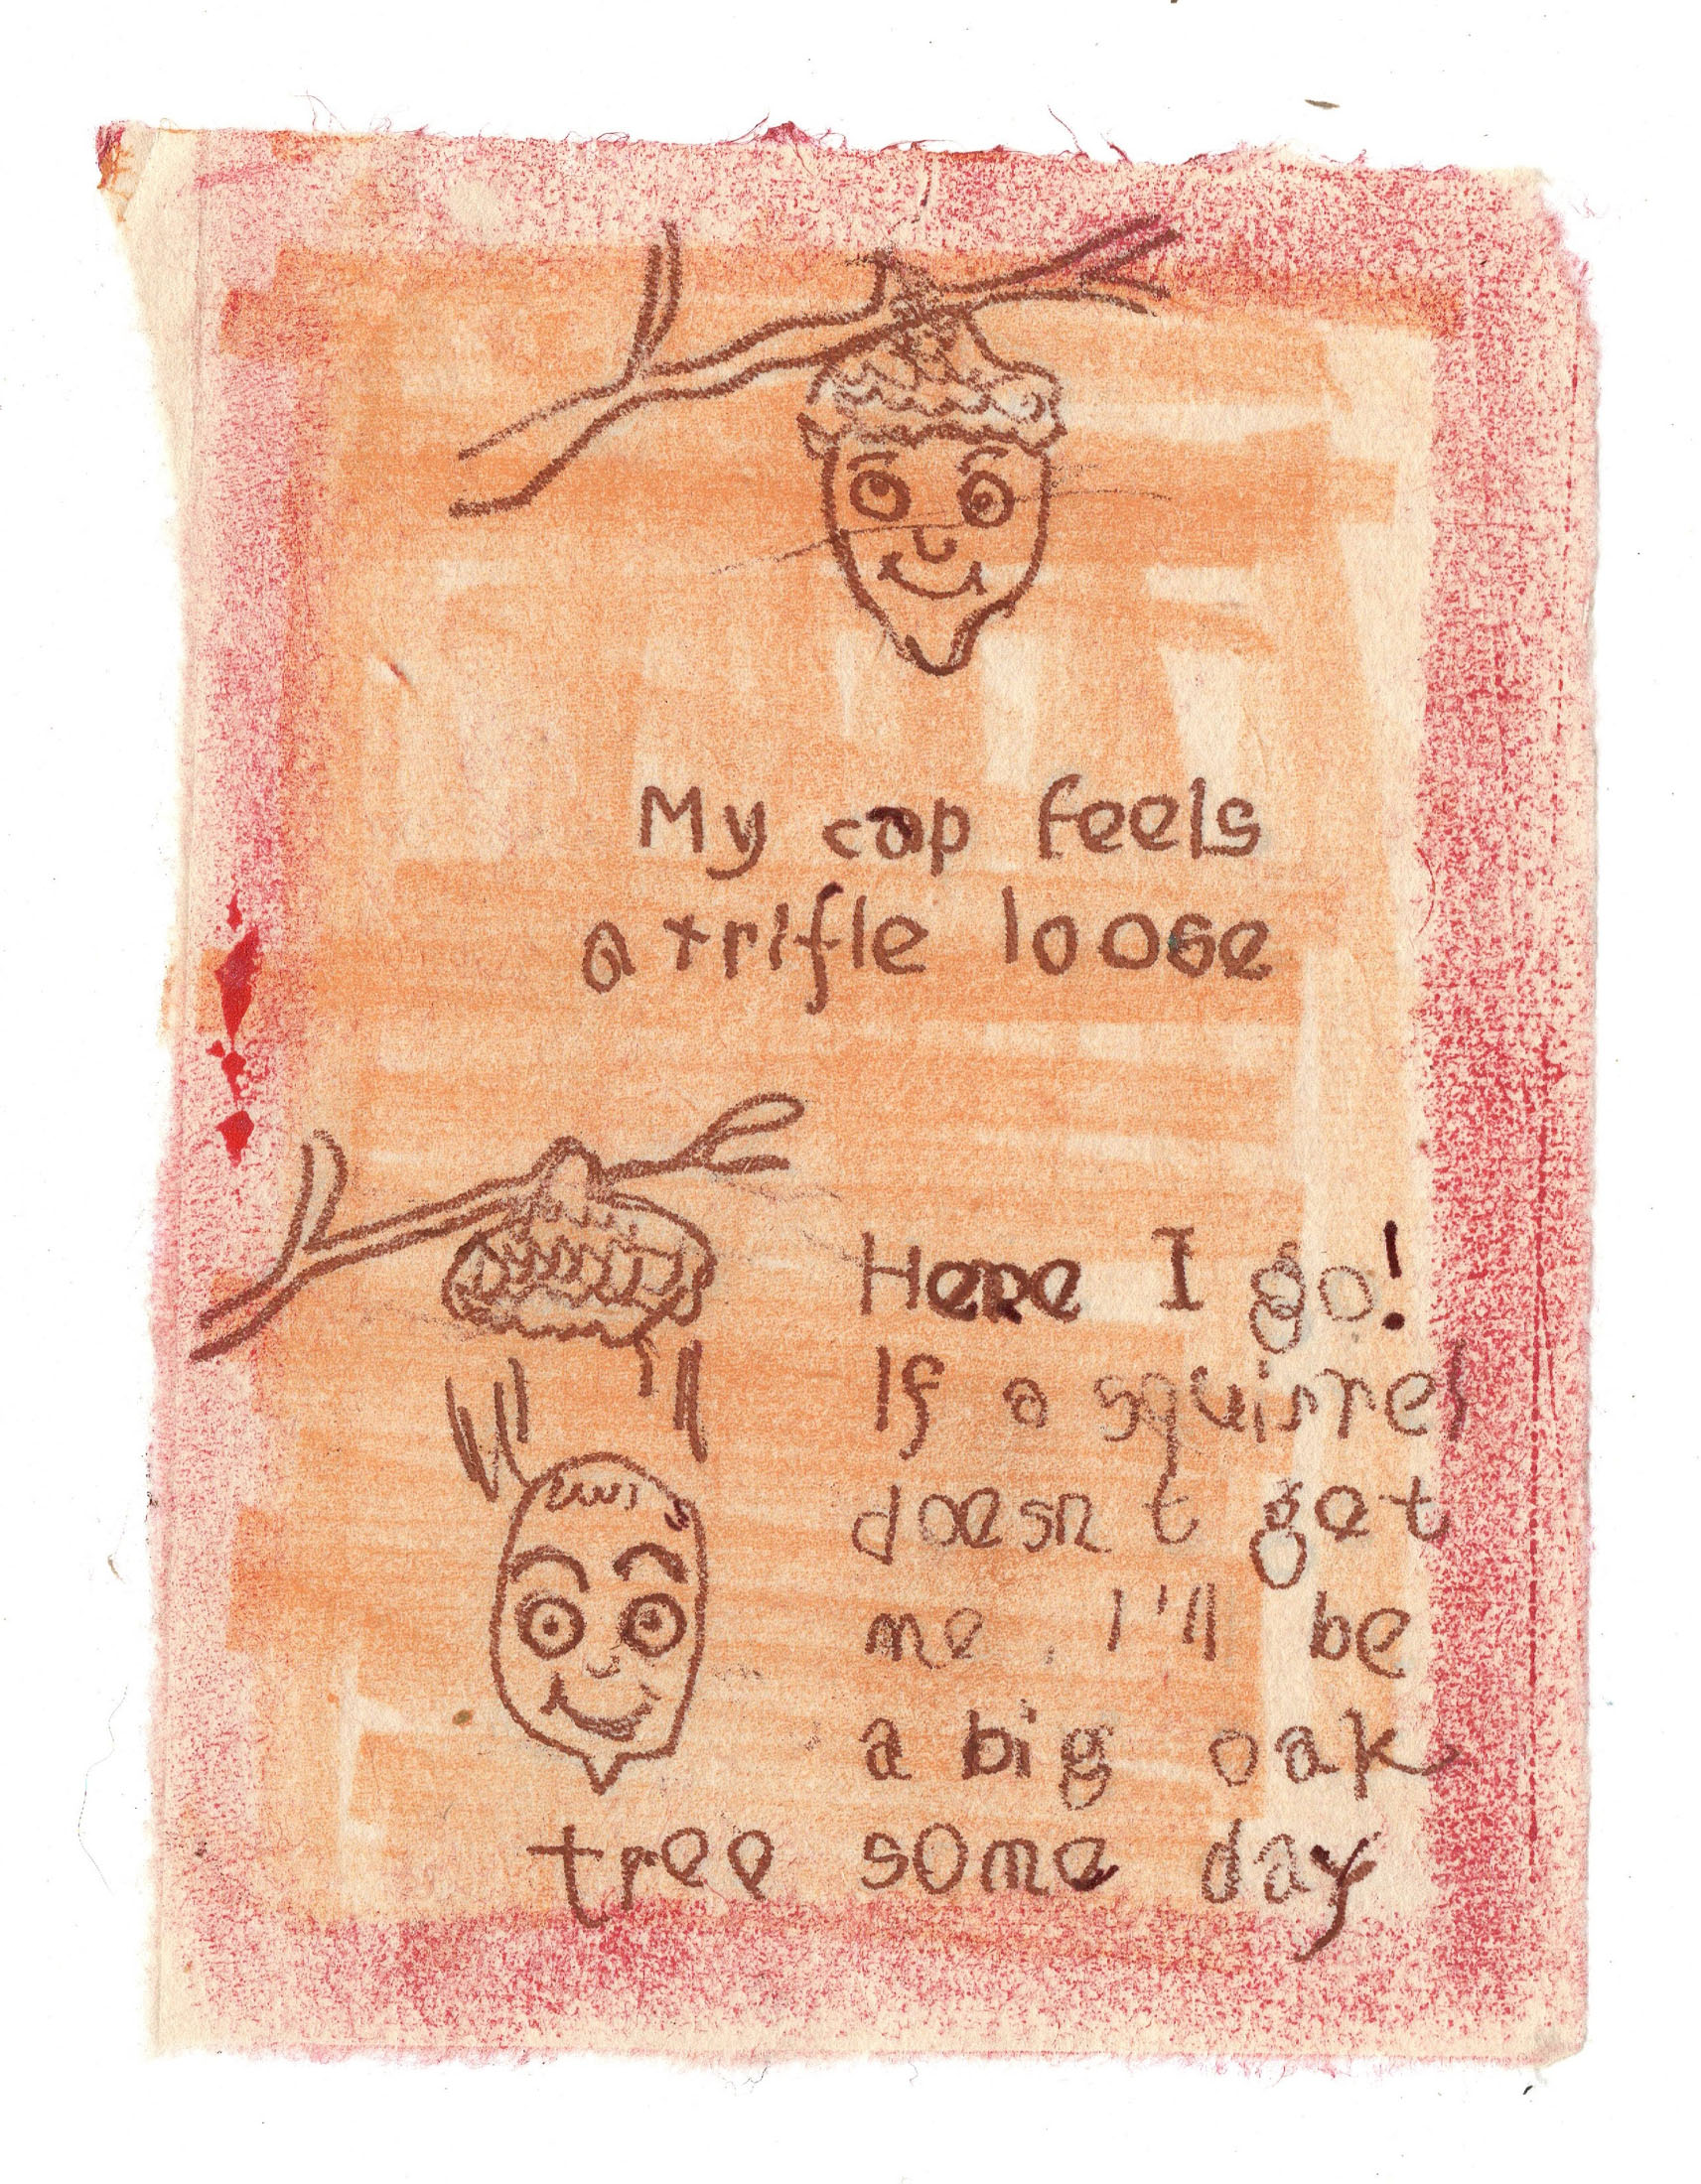 My cap feels
a trifle loose
Here I go!
If a squirrel
doesn t get
me, I'll be
a big oak
tree some day